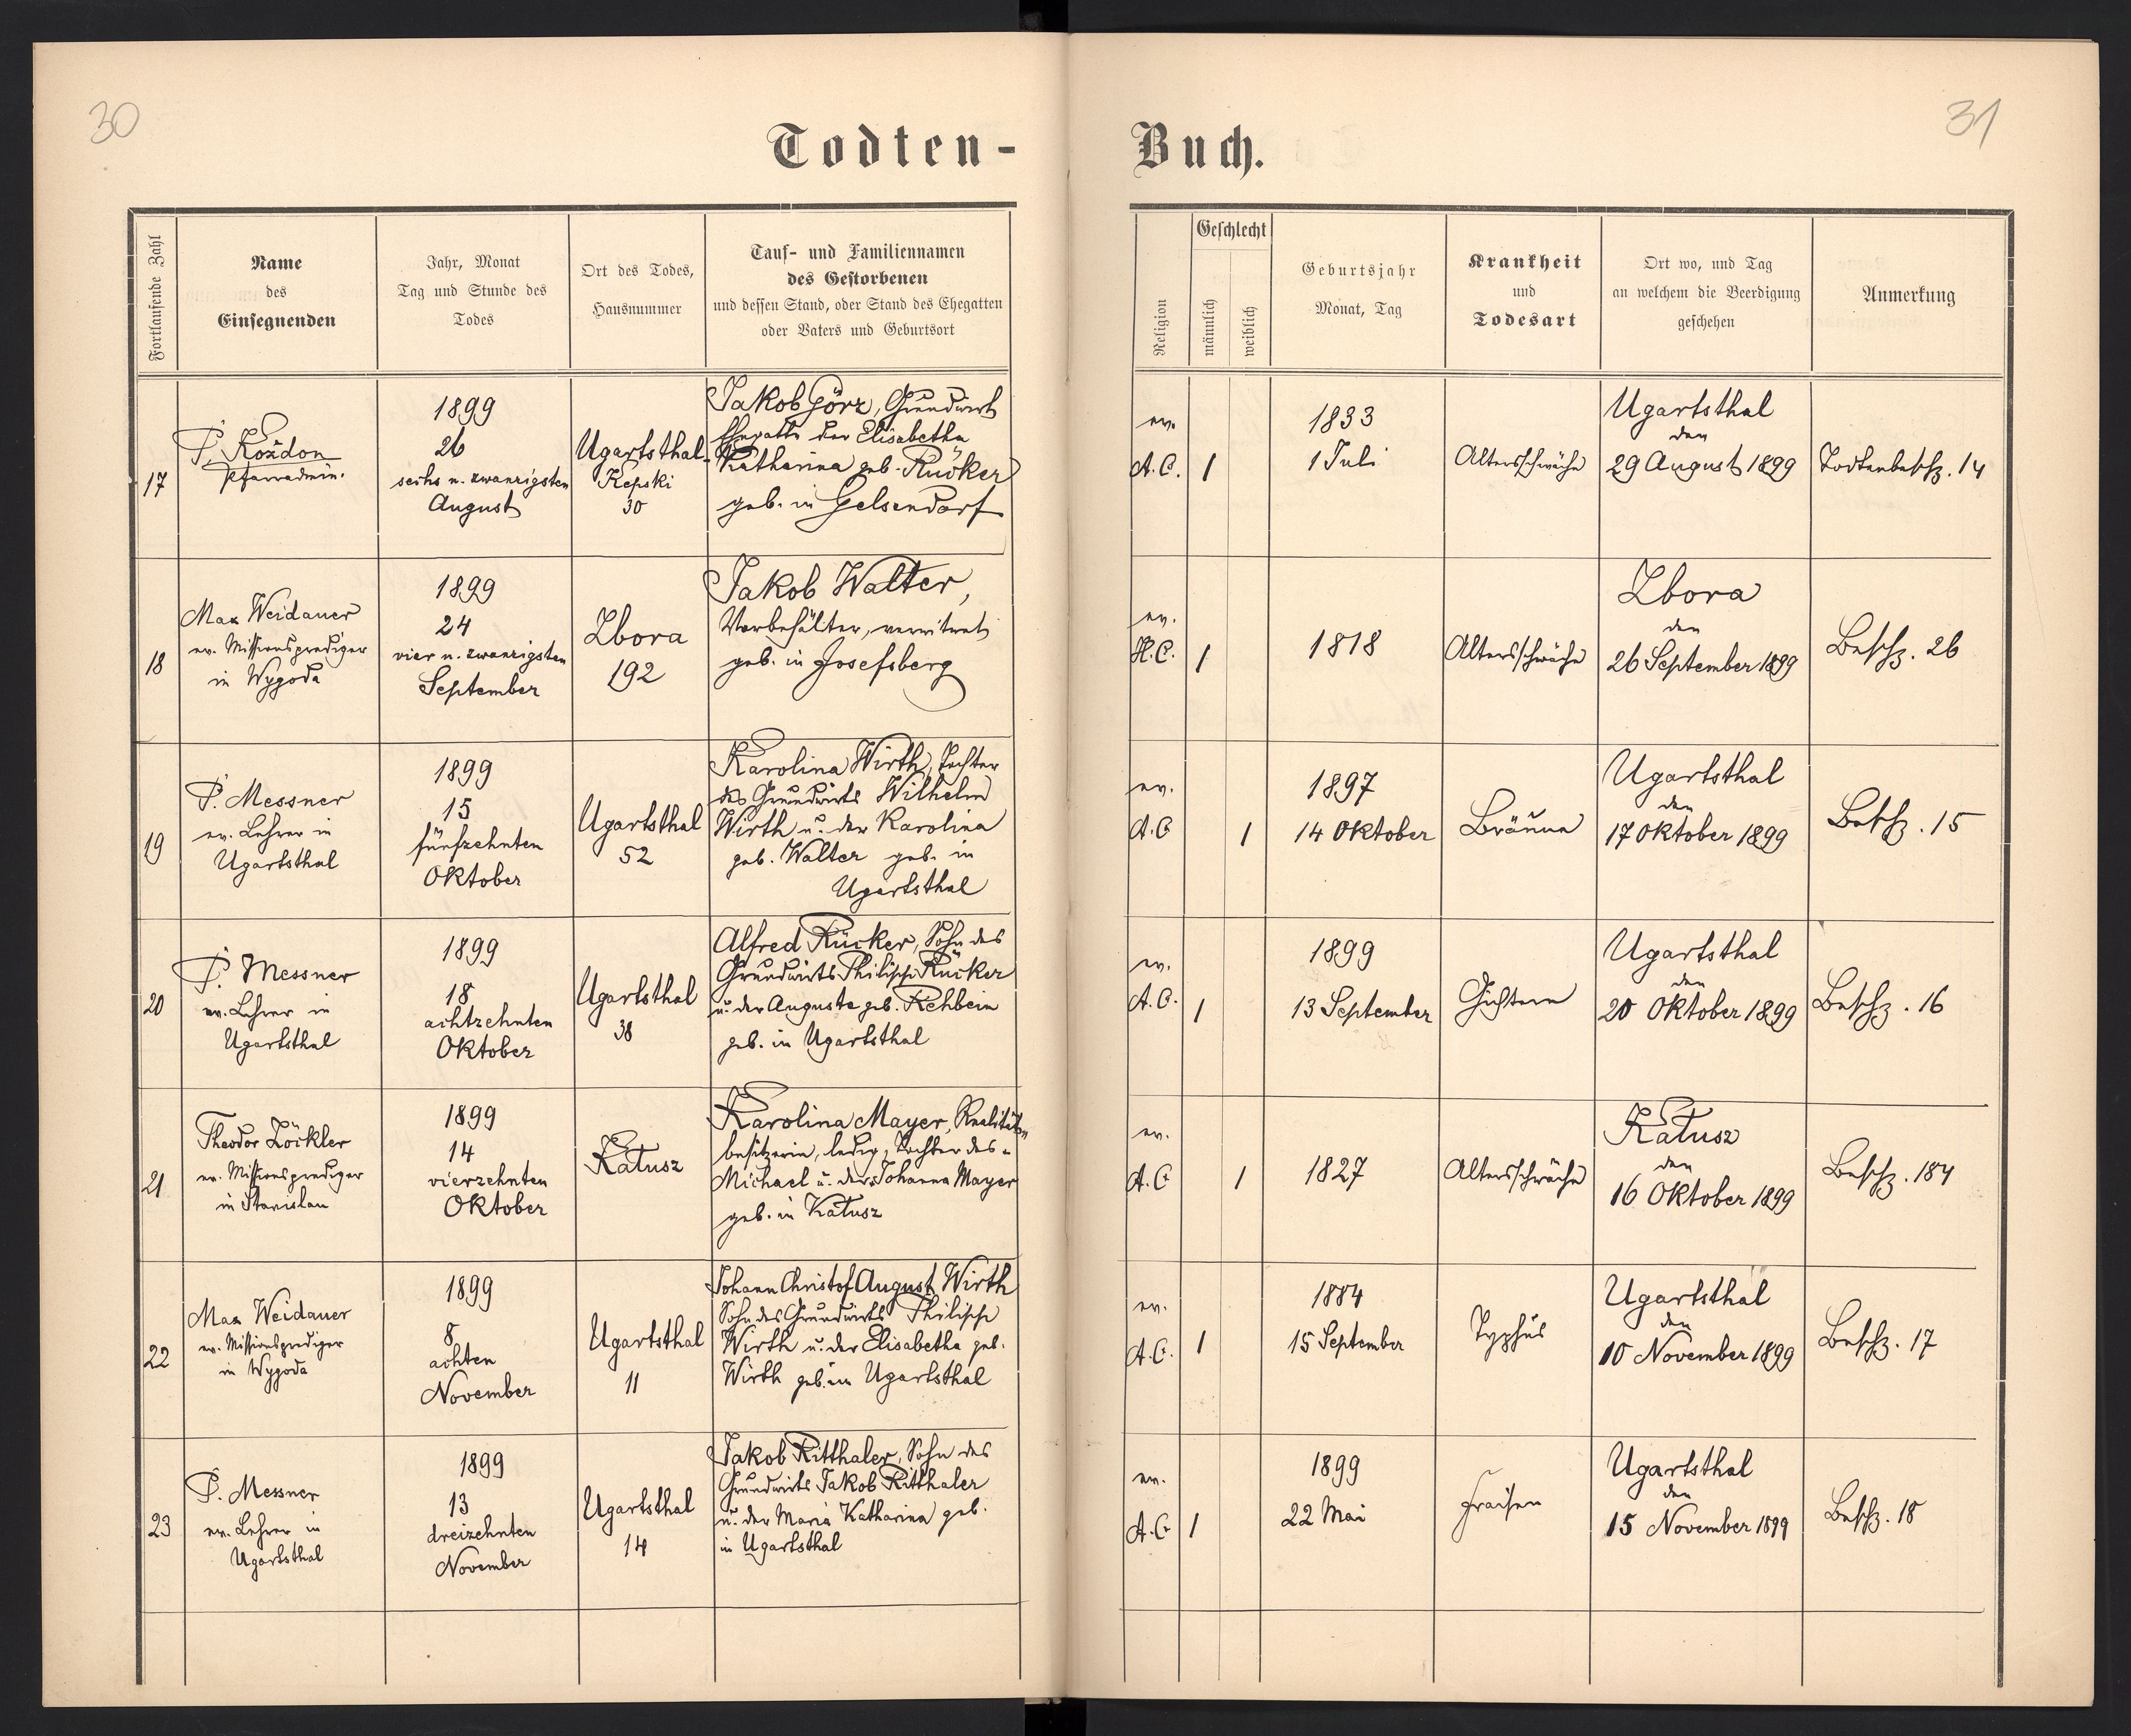 30
31
Todten-
Buch.
Fortlaufende Zahl
Name
des
Einsegnenden
Jahr, Monat
Tag und Stunde des
Todes
Ort des Todes,
Hausnummer
Tauf- und Familiennamen
des Gestorbenen
und dessen Stand, oder Stand des Ehegatten
oder Vaters und Geburtsort
Religion
Geschlecht
männlich
weiblich
Geburtsjahr
Monat, Tag
Krankheit
und
Todesart
Ort wo, und Tag
an welchem die Beerdigung
geschehen
Anmerkung
17
P. Kożdon
Pfarradmin.
1899
26
sechs u. zwanzigsten
August
Ugartsthal-
Kepski
30
Jakob Görz, Grundwirt
Ehegatte der Elisabetha
Katharina geb. Rücker
geb. in Gelsendorf
ev.
A.C.
1
1833
1 Juli
Altersschwäche
Ugartsthal
den
29 August 1899
Todtenbesch. 14
18
Max Weidauer
ev. Missionsprediger
in Wygoda
1899
24
vier u. zwanzigsten
September
Zbora
192
Jakob Walter,
Vorbehälter, verwitwet
geb. in Josefsberg
ev.
H.C.
1
1818
Altersschwäche
Zbora
den
26 September 1899
Besch. 26
19
P. Messner
ev. Lehrer in
Ugartsthal
1899
15
fünfzehnten
Oktober
Ugartsthal
52
Karolina Wirth, Tochter
des Grundwirts Wilhelm
Wirth u. der Karolina
geb. Walter geb. in
Ugartsthal
ev.
A.C
1
1897
14 Oktober
Bräune
Ugartsthal
den
17 Oktober 1899
Besch. 15
20
P. Messner
ev. Lehrer in
Ugartsthal
1899
18
achtzehnten
Oktober
Ugartsthal
38
Alfred Rücker, Sohn des
Grundwirts Philipp Rücker
u. der Auguste geb. Rehbein
geb. in Ugartsthal
ev.
A.C.
1
1899
13 September
Gichtern
Ugartsthal
den
20 Oktober 1899
Besch. 16
21
Theodor Zöckler
ev. Missionsprediger
in Stanislau
1899
14
vierzehnten
Oktober
Kałusz
Karolina Mayer, Realitäten
besitzerin, ledig, Tochter des
Michael u. der Johanna Mayer
geb. in Kałusz
ev.
A.C
1
1827
Altersschwäche
Kałusz
den
16 Oktober 1899
Besch. 184
22
Max Weidauer
ev. Missionsprediger
in Wygoda
1899
8
achten
November
Ugartsthal
11
Johann Christof August Wirth
Sohn des Grundwirts Philipp
Wirth u. der Elisabetha geb.
Wirth geb. in Ugartsthal
ev.
A.C.
1
1884
15 September
Typhus
Ugartsthal
den
10 November 1899
Besch. 17
23
P. Messner
ev. Lehrer in
Ugartsthal
1899
13
dreizehnten
November
Ugartsthal
14
Jakob Ritthaler, Sohn des
Grundwirts Jakob Ritthaler
u. der Maria Katharina geb.
in Ugartsthal
ev.
A.C
1
1899
22 Mai
Fraisen
Ugartsthal
den
15 November 1899
Besch. 18